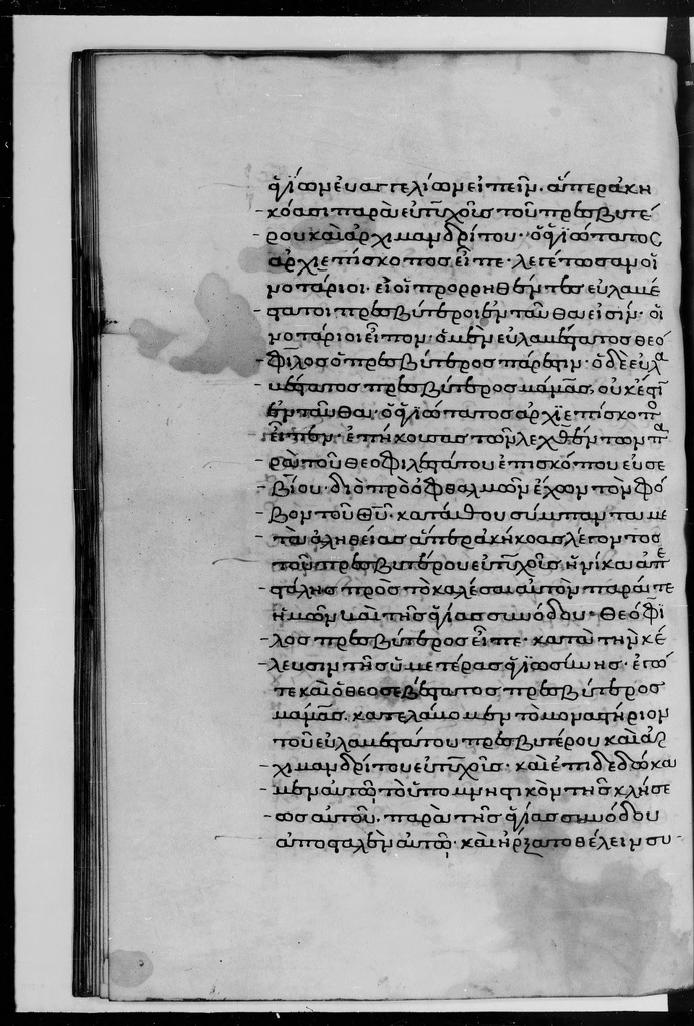 ἁγίων εὐαγγελίων εἰπεῖν. ἅπερ ἀκη
κόασι παρὰ εὐτυχοῦς τοῦ πρεσβυτέ
ρου καὶ ἀρχιμανδρίτου· ὁ ἁγιώτατος
ἀρχιεπίσκοπος εἶπε· λεγέτωσαν οἱ
νοτάριοι· εἰ οἱ προρρηθέντες εὐλαβέ
στατοι πρεσβύτεροι ἐνταῦθα εἰσίν· οἱ
νοτάριοι εἶπον· ὁ μὲν εὐλαβέστατος θεό
φιλος ὁ πρεσβύτερος πάρεστιν· ὁ δὲ εὐλα
βέστατος πρεσβύτερος μάμας, οὐκ ἔστιν
ἐνταῦθα· ὁ ἁγιώτατος ἀρχιεπίσκοπο
εἶπεν· ἐπήκουσας τῶν λεχθέντων πα
ρὰ τοῦ θεοφιλεστάτου ἐπισκόπου εὐσε
βίου· διὸ πρὸ ὀφθαλμῶν ἔχων τὸν φό
βον τοῦ θυ· κατάθου σύμπαντα με
τὰ ἀληθείας ἅπερ ἀκήκοας λέγοντος
τοῦ πρεσβυτέρου εὐτυχοῦς, ἡνίκα ἀπε
στάλης πρὸς τὸ καλέσαι αὐτὸν παρά τε
ἡμῶν καὶ τῆς ἁγίας συνόδου· θεόφι
λος πρεσβύτερος εἶπε· κατὰ τὴν κέ
λευσιν τῆς ὑμετέρας ἁγιωσύνης· ἐγώ
τε καὶ ὁ θεοσεβέστατος πρεσβύτερος
μάμας. κατελάβομεν τὸ μοναστήριον
τοῦ εὐλαβεστάτου πρεσβυτέρου καὶ ἀρ
χιμανδρίτου εὐτυχοῦς· καὶ ἐπιδεδώκα
μεν αὐτῷ τὸ ὑπομνηστικὸν τῆς κλήσε
ως αὐτοῦ, παρὰ τῆς ἁγίας συνόδου
ἀποσταλὲν αὐτῷ· καὶ ἤρξατο θέλειν συ